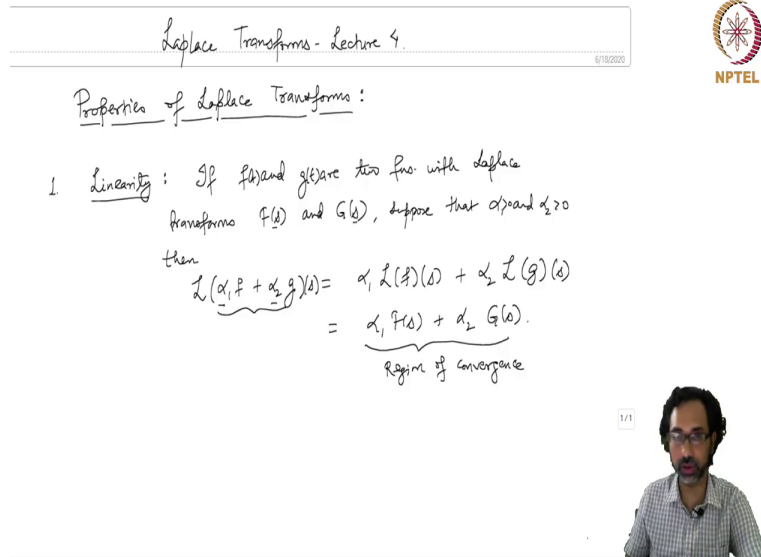 Laplace Transforms - Lecture 4.
6/18/2020
NPTEL
Properties of Laplace Transforms :
1. Linearity : If f(t) and g(t) are two fns. with Laplace
transforms F(s) and G(s), suppose that α>0 and α₂>0
then
L(α₁f + α₂g)(s) = α₁ L(f)(s) + α₂ L(g)(s)
= α₁ F(s) + α₂ G(s).
Region of convergence
1/1